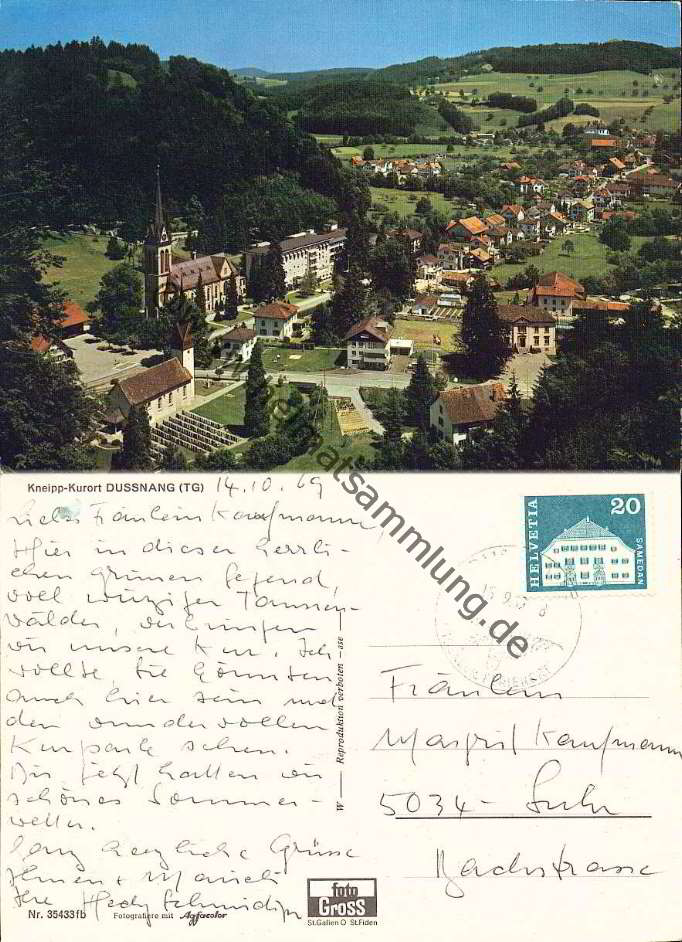 Kneipp-Kurort DUSSNANG (TG) 14.10.69
Liebes Fräulein Kaufmann,
Hier in dieser herrli-
chen grünen Gegend,
voll würziger Tannen-
wälder, verbringen
wir unsere Kur. Ich
wollte, Sie könnten
auch hier sein und
den wundervollen
Kurpark sehen.
Bis jetzt hatten wir
schönes Sommer-
wetter.
Ganz herzliche Grüsse
Ihnen +
Ihre Hedy
Nr. 35433fb
Fotografiere mit Agfacolor
W — Reproduktion verboten - ase
foto
Gross
St.Gallen O St.Fiden
HELVETIA
20
SAMEDAN
Fräulein
Margrit Kaufmann
5034 - Suhr
Bachstrasse
www.heimatsammlung.de